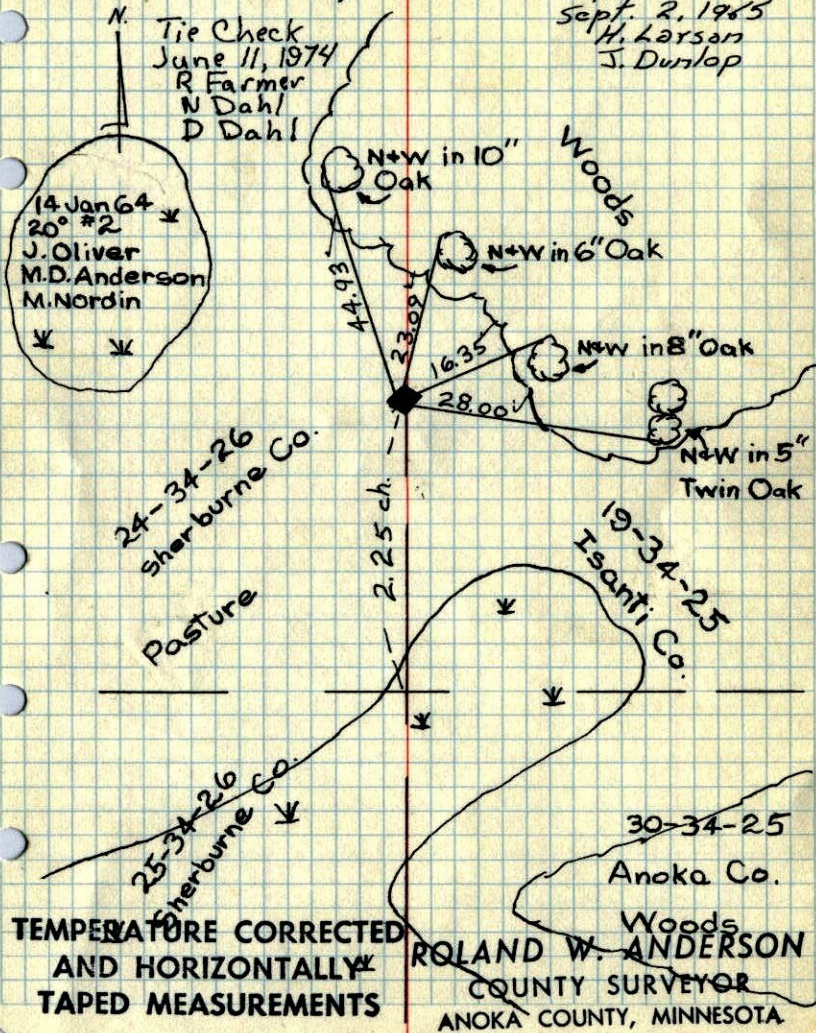 N.
Tie Check
June 11, 1974
R Farmer
N Dahl
D Dahl
Sept. 2, 1965
H. Larson
J. Dunlop
14 Jan 64
20° #2
J. Oliver
M.D. Anderson
M. Nordin
N+W in 10"
Oak
Woods
N+W in 6" Oak
44.93
23.09
16.35
N+W in 8" Oak
28.00
N+W in 5"
Twin Oak
24-34-26
Sherburne Co.
Pasture
2.25 ch.
19-34-25
Isanti Co.
25-34-26
Sherburne Co.
30-34-25
Anoka Co.
Woods
TEMPERATURE CORRECTED
AND HORIZONTALLY
TAPED MEASUREMENTS
ROLAND W. ANDERSON
COUNTY SURVEYOR
ANOKA COUNTY, MINNESOTA